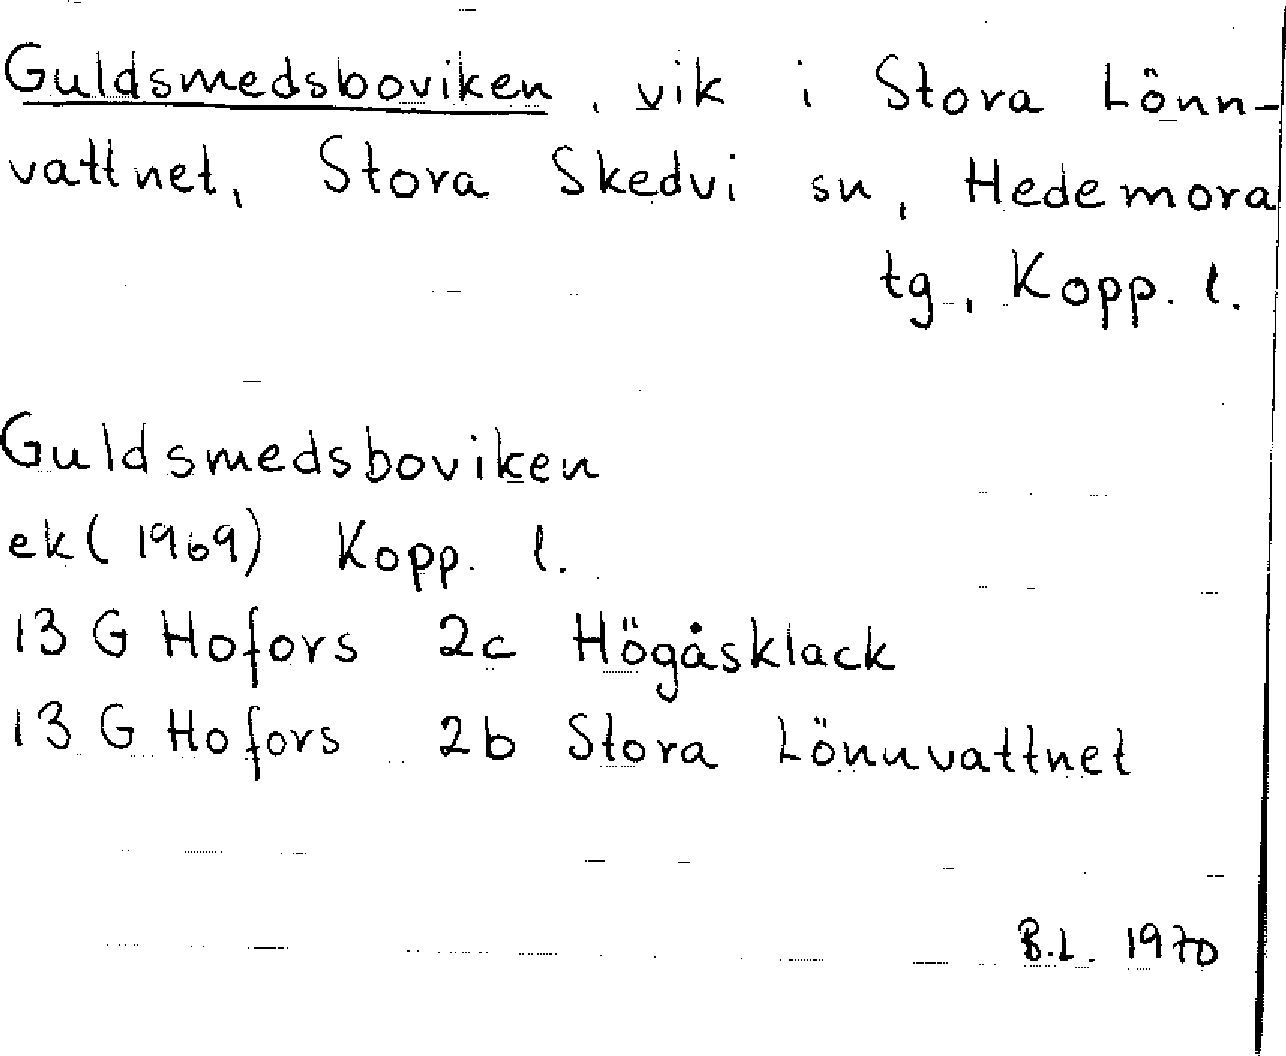 Guldsmedsboviken, vik i Stora Lönn-
vattnet, Stora Skedvi sn, Hedemora
tg, Kopp. l.
Guldsmedsboviken
ek (1969) Kopp. l.
13 G Hofors 2c Högåsklack
13 G Hofors 2b Stora Lönnvattnet
B.L. 1970